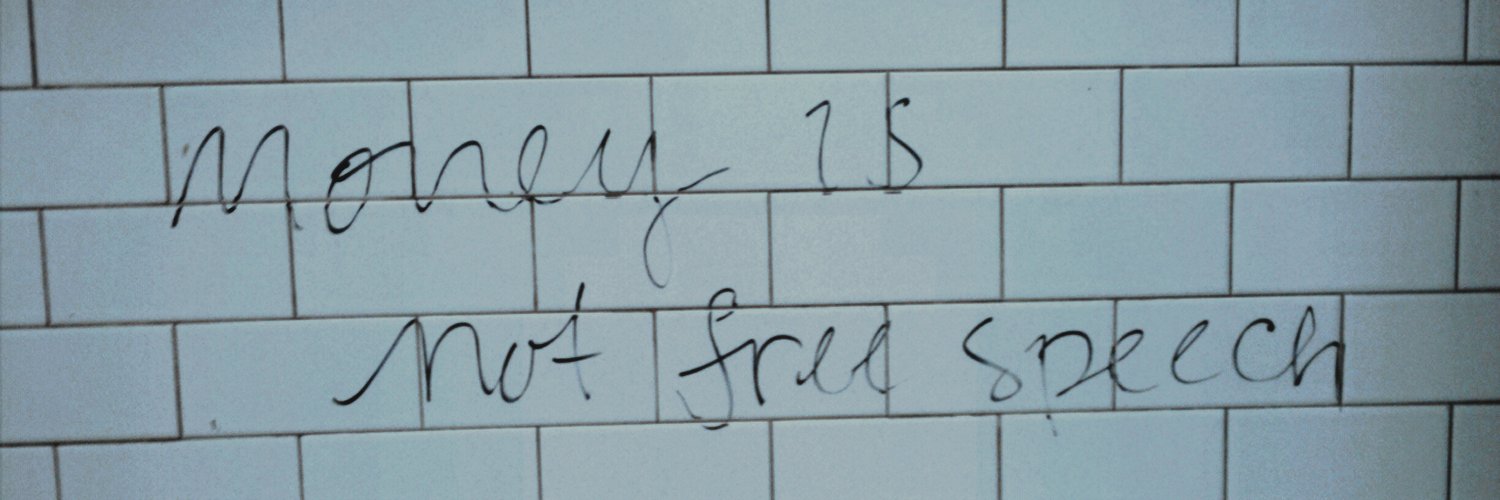 Money is
not free speech